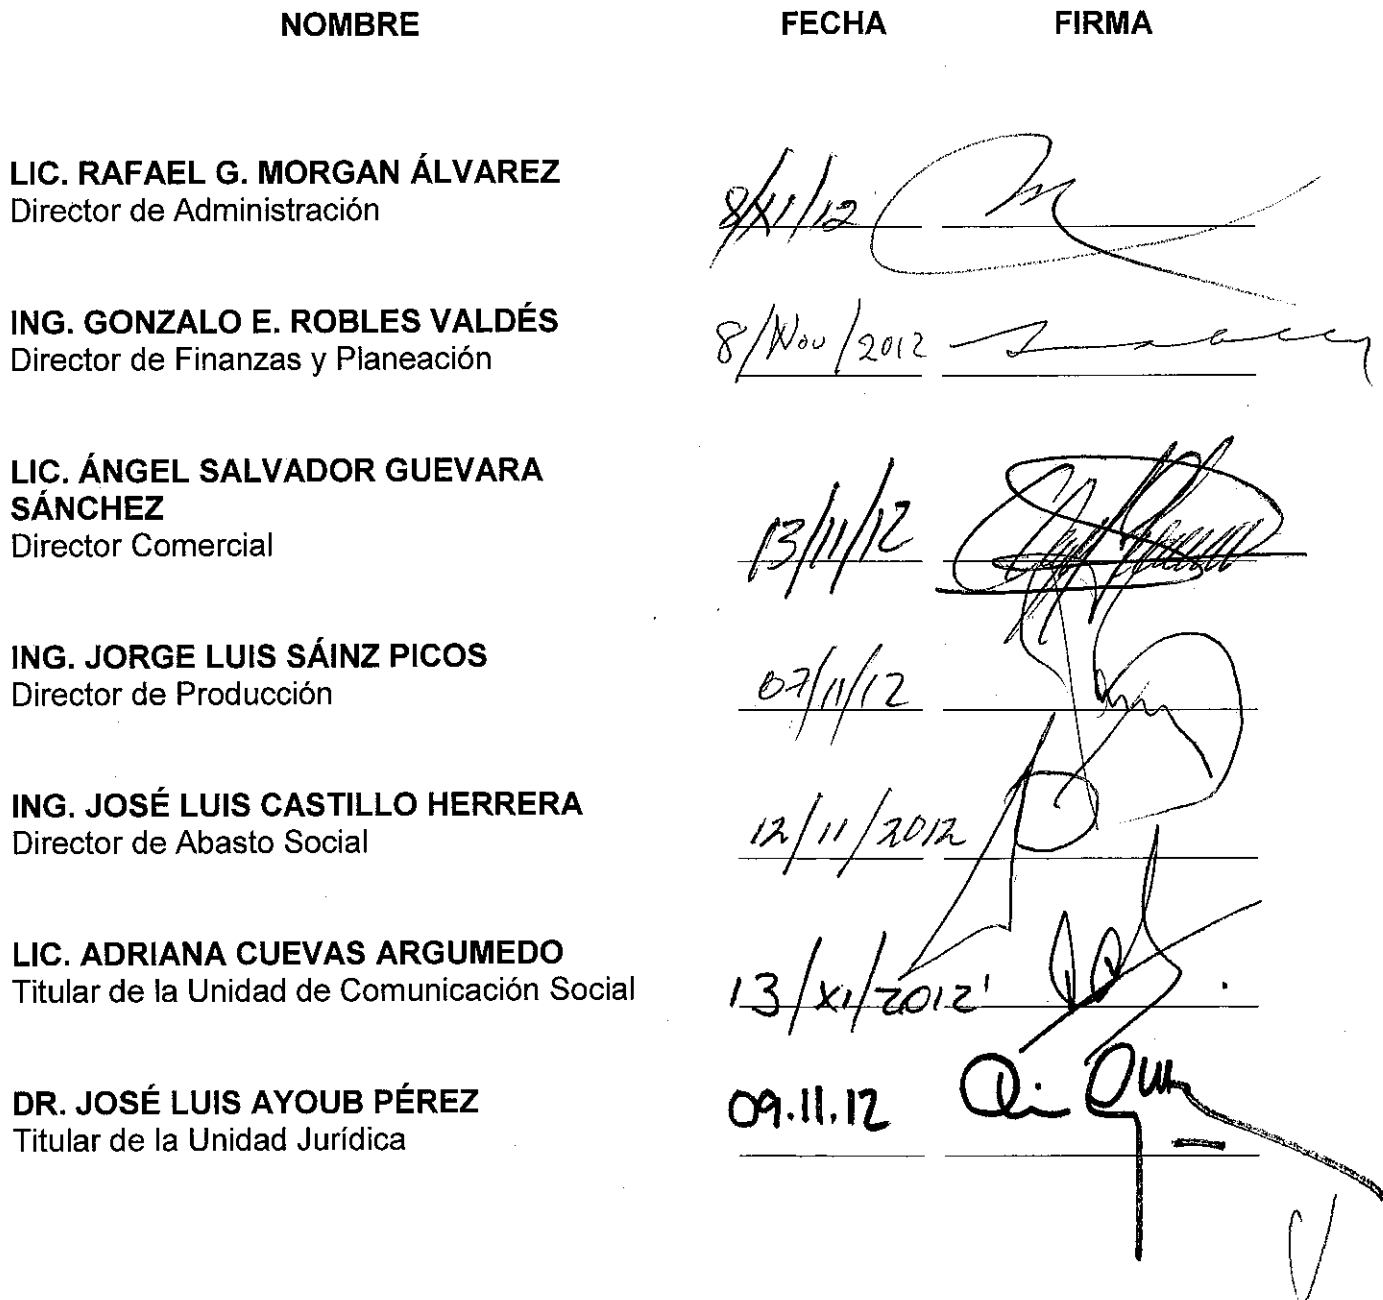 NOMBRE FECHA FIRMA
LIC. RAFAEL G. MORGAN ÁLVAREZ
Director de Administración 8/XI/12
ING. GONZALO E. ROBLES VALDÉS
Director de Finanzas y Planeación 8/Nov/2012
LIC. ÁNGEL SALVADOR GUEVARA
SÁNCHEZ
Director Comercial 13/11/12
ING. JORGE LUIS SÁINZ PICOS
Director de Producción 07/11/12
ING. JOSÉ LUIS CASTILLO HERRERA
Director de Abasto Social 12/11/2012
LIC. ADRIANA CUEVAS ARGUMEDO
Titular de la Unidad de Comunicación Social 13/XI/2012
DR. JOSÉ LUIS AYOUB PÉREZ 09.11.12
Titular de la Unidad Jurídica